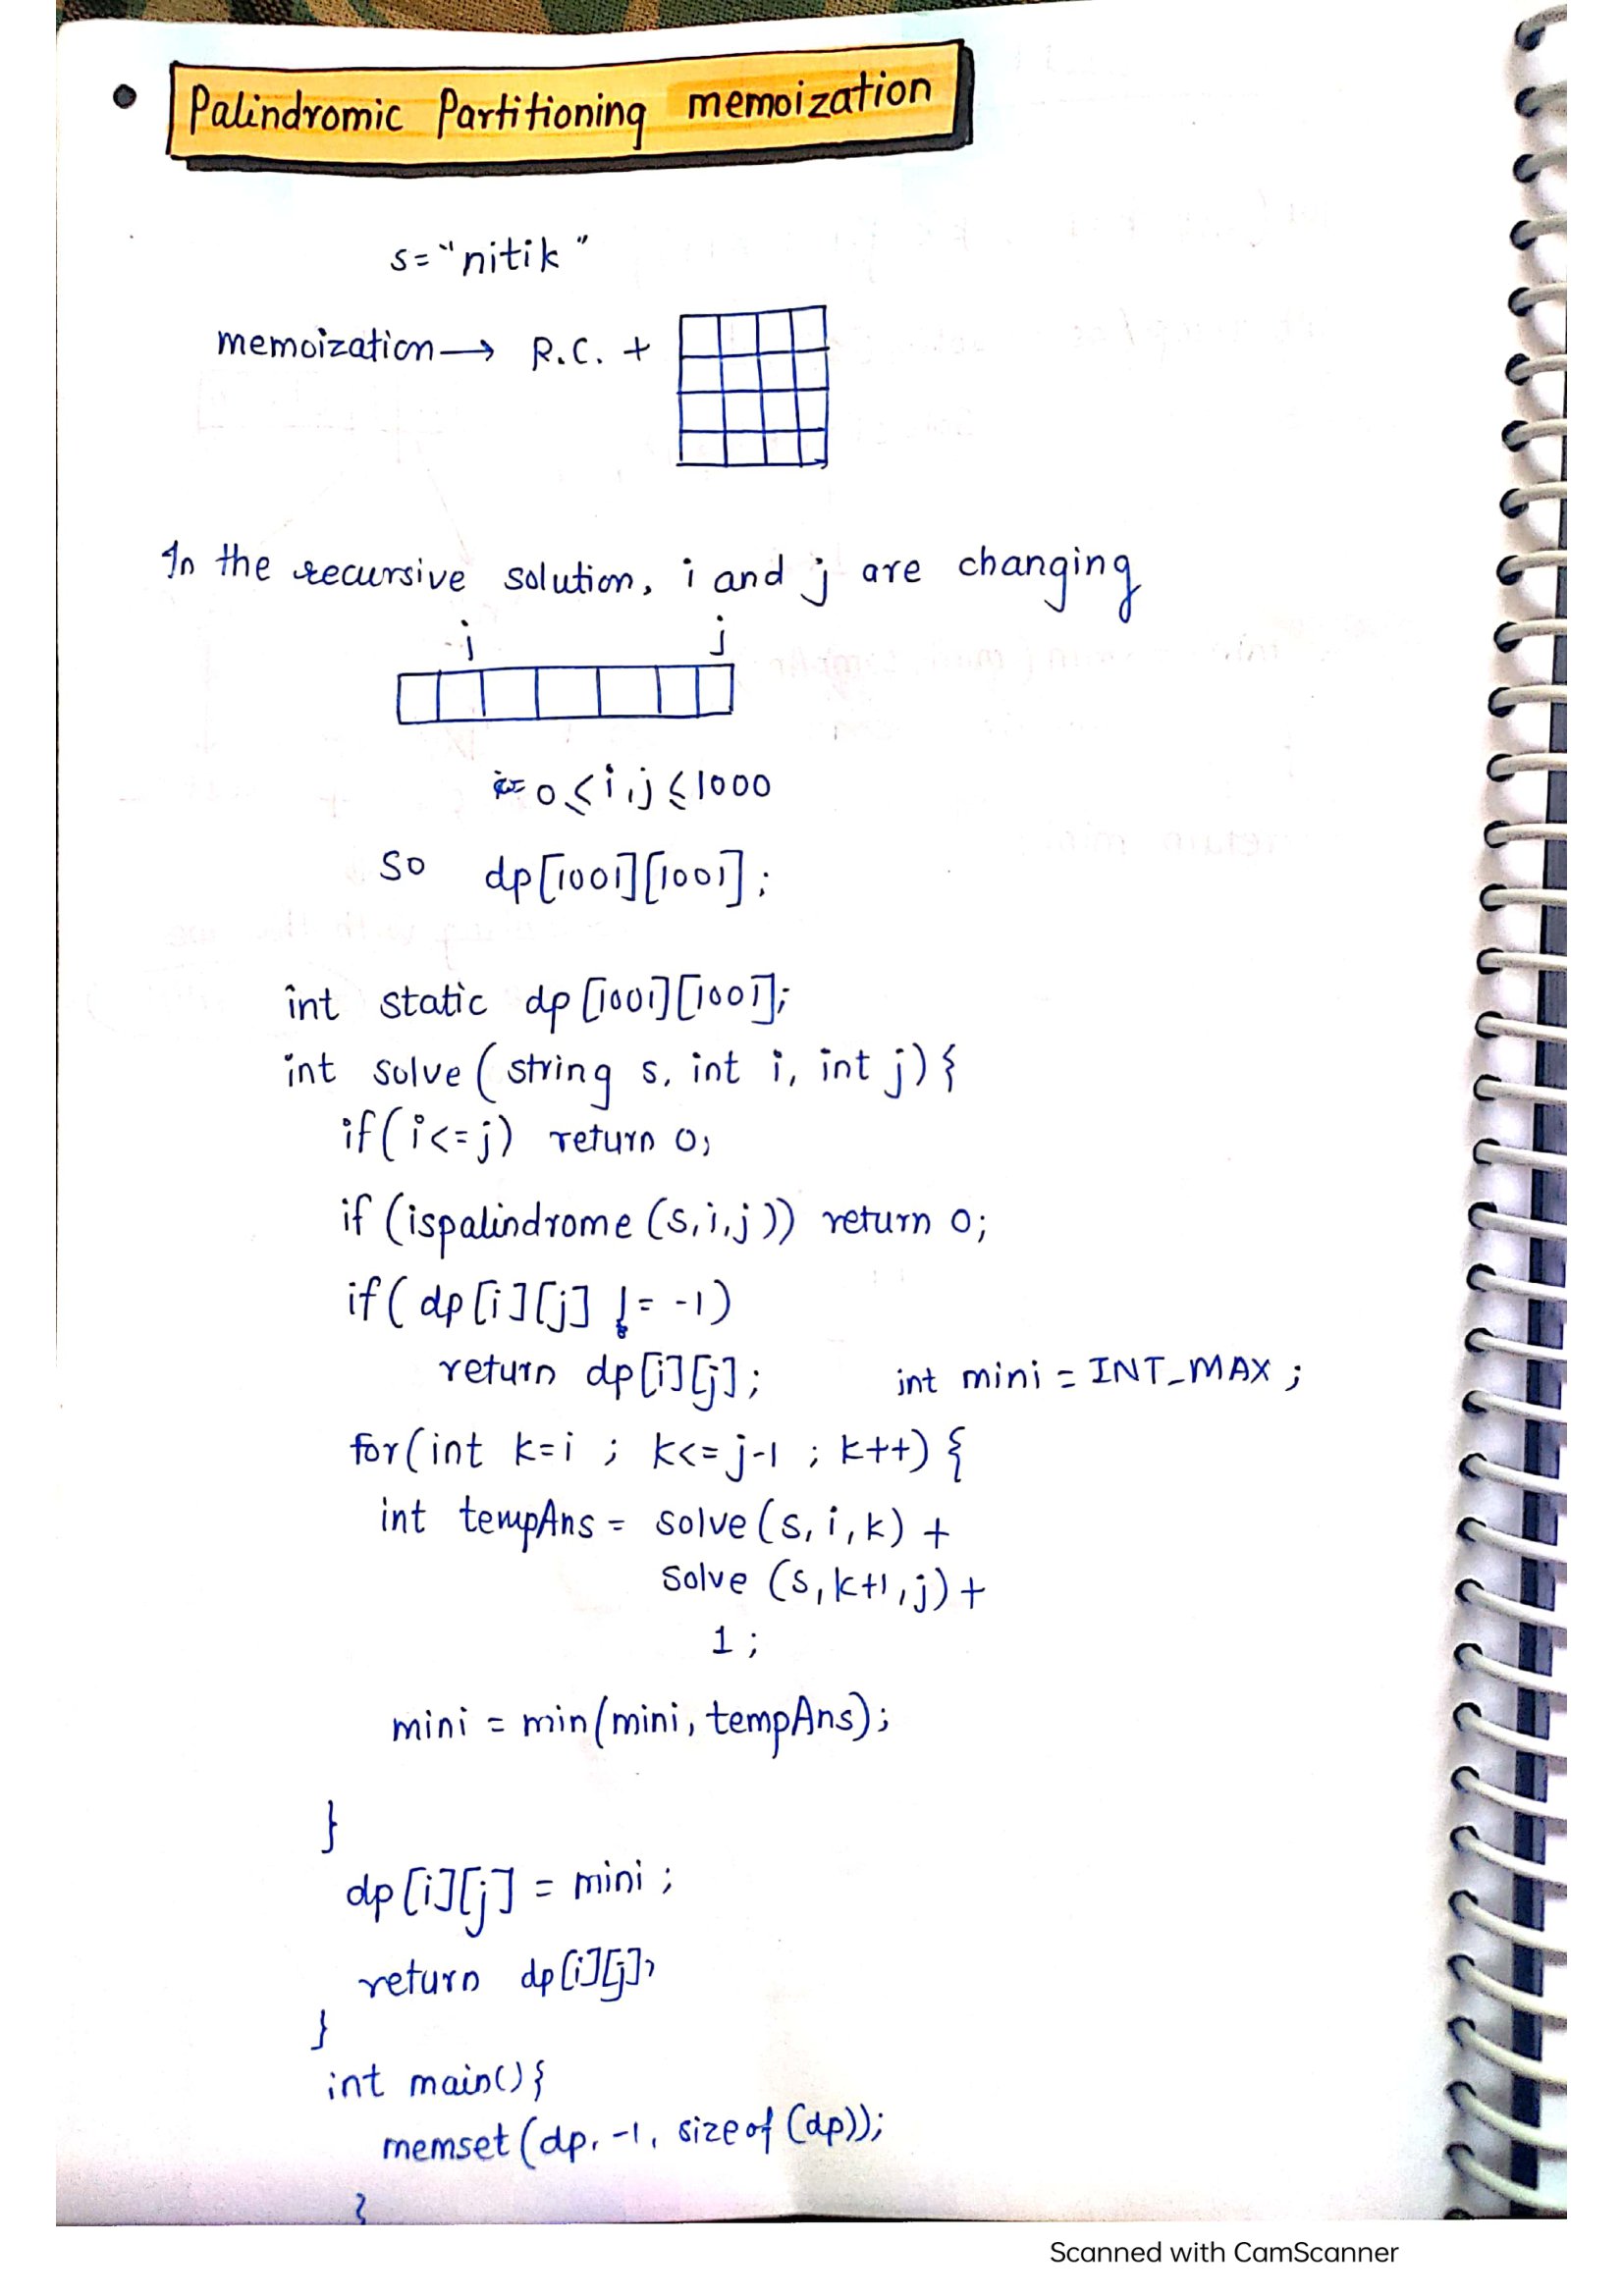 • Palindromic Partitioning memoization
s="nitik"
memoization → R.C. +
In the recursive solution, i and j are changing
i j
0 ≤ i,j ≤ 1000
So dp[1001][1001];
int static dp[1001][1001];
int solve(string s, int i, int j){
if(i<=j) return 0;
if(ispalindrome(s,i,j)) return 0;
if(dp[i][j] != -1)
return dp[i][j]; int mini = INT_MAX;
for(int k=i ; k<=j-1 ; k++){
int tempAns = solve(s,i,k) +
solve(s,k+1,j)+
1;
mini = min(mini, tempAns);
}
dp[i][j] = mini;
return dp[i][j];
}
int main(){
memset(dp, -1, sizeof(dp));
}
Scanned with CamScanner